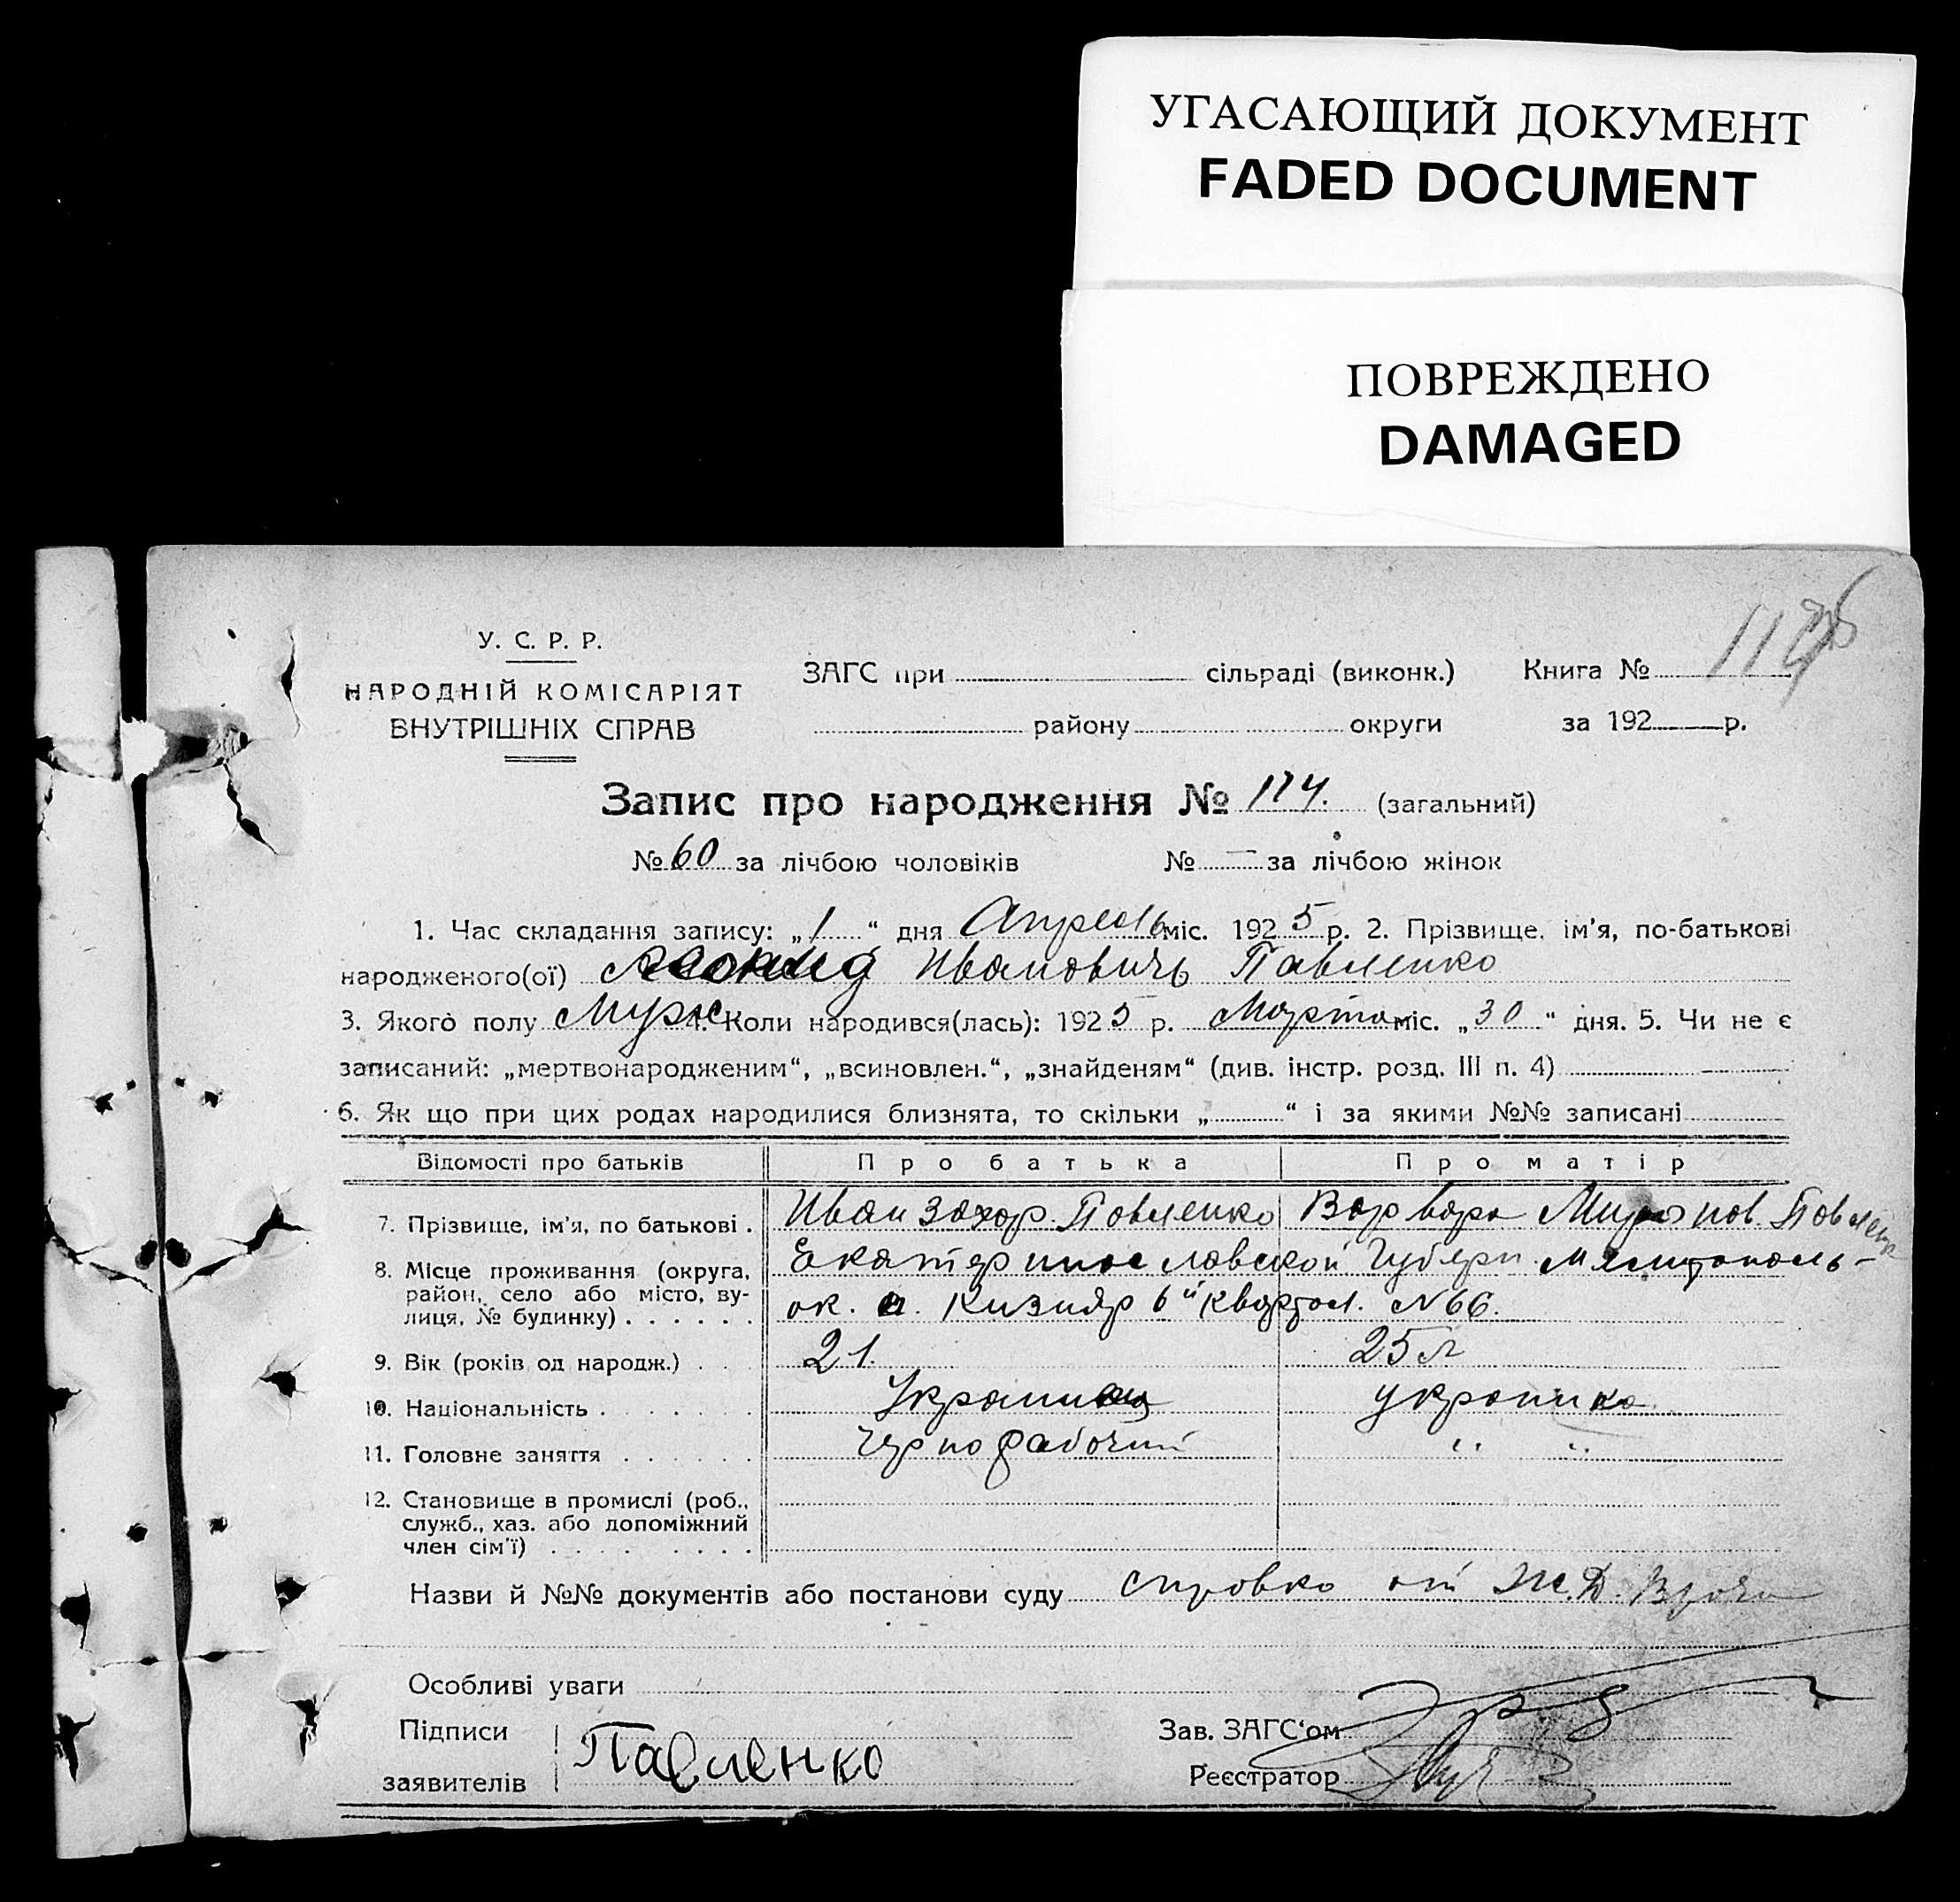 УГАСАЮЩИЙ ДОКУМЕНТ
FADED DOCUMENT
ПОВРЕЖДЕНО
DAMAGED
У. С. Р. Р.
НАРОДНІЙ КОМІСАРІЯТ
ВНУТРІШНІХ СПРАВ
ЗАГС при сільраді (виконк.) Книга №
району округи за 192 р.
Запис про народження № 114. (загальний)
№ 60 за лічбою чоловіків № — за лічбою жінок
1. Час складання запису: „1“ дня Апрель міс. 1925 р. 2. Прізвище, ім'я, по-батькові
народженого(ої) Леонид Ивановичь Павленко
3. Якого полу Муж 4. Коли народився(лась): 1925 р. Марта міс. „30“ дня. 5. Чи не є
записаний: „мертвонародженим“, „всиновлен.“, „знайденям“ (див. інстр. розд. III п. 4)
6. Як що при цих родах народилися близнята, то скільки „ “ і за якими №№ записані
Відомості про батьків Про батька Про матір
7. Прізвище, ім'я, по батькові . Иван Захар. Павленко Варвара Миронов. Павленк
8. Місце проживання (округа, район, село або місто, вулиця, № будинку) . . . . . . Екатеринославской Губерн. Мелитополь-
ок. с. Кизияр 6й квартал. N 66.
9. Вік (років од народж.) . . 21. 25 л
10. Національність . . . . . . Украинец украинка
11. Головне заняття . . . . . . Чернорабочий " "
12. Становище в промислі (роб.,
служб., хаз. або допоміжний
член сім'ї) . . . . . . . .
Назви й №№ документів або постанови суду справка от Ж.Д. Врача
Особливі уваги
Підписи Зав. ЗАГС'ом
заявителів Павленко Реєстратор